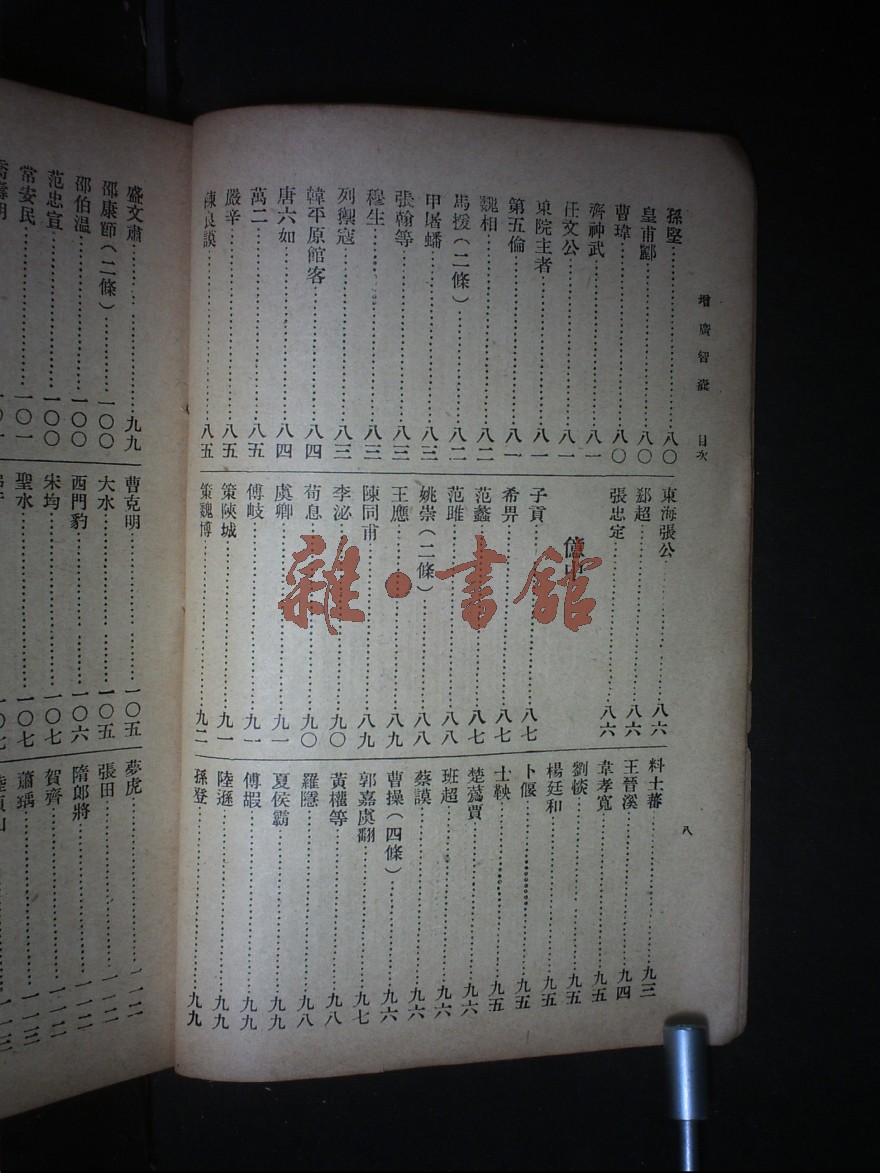 增廣智囊 目次
八
孫堅……八〇
皇甫酈……八〇
曹瑋……八〇
齊神武……八一
任文公……八一
東院主者……八一
第五倫……八一
魏相……八二
馬援（二條）……八二
申屠蟠……八三
張翰等……八三
穆生……八三
列禦寇……八三
韓平原館客……八四
唐六如……八四
萬二……八五
嚴辛……八五
陳良謨……八五
東海張公……八六
郄超……八六
張忠定……八六
億中
子貢……八七
希畀……八七
范蠡……八七
范雎……八八
姚崇（二條）……八八
王應……八九
陳同甫……八九
李泌……九〇
荀息……九〇
虞卿……九一
傅岐……九一
策陝城……九一
策魏博……九二
料土蕃……九三
王晉溪……九四
韋孝寬……九五
劉惔……九五
楊廷和……九五
卜偃……九五
士鞅……九五
楚蔿賈……九六
班超……九六
蔡謨……九六
曹操（四條）……九六
郭嘉虞翻……九七
黃權等……九八
羅隱……九八
夏侯霸……九九
傅嘏……九九
陸遜……九九
孫登……九九
盛文肅……九九
邵康節（二條）……一〇〇
邵伯溫……一〇〇
范忠宣……一〇〇
常安民……一〇一
曹克明……一〇五
大水……一〇五
西門豹……一〇六
宋均……一〇七
聖水……一〇七
夢虎……一一二
張田……一一二
隋郎將……一一二
賀齊……一一二
蕭瑀……一一三
雜·書館